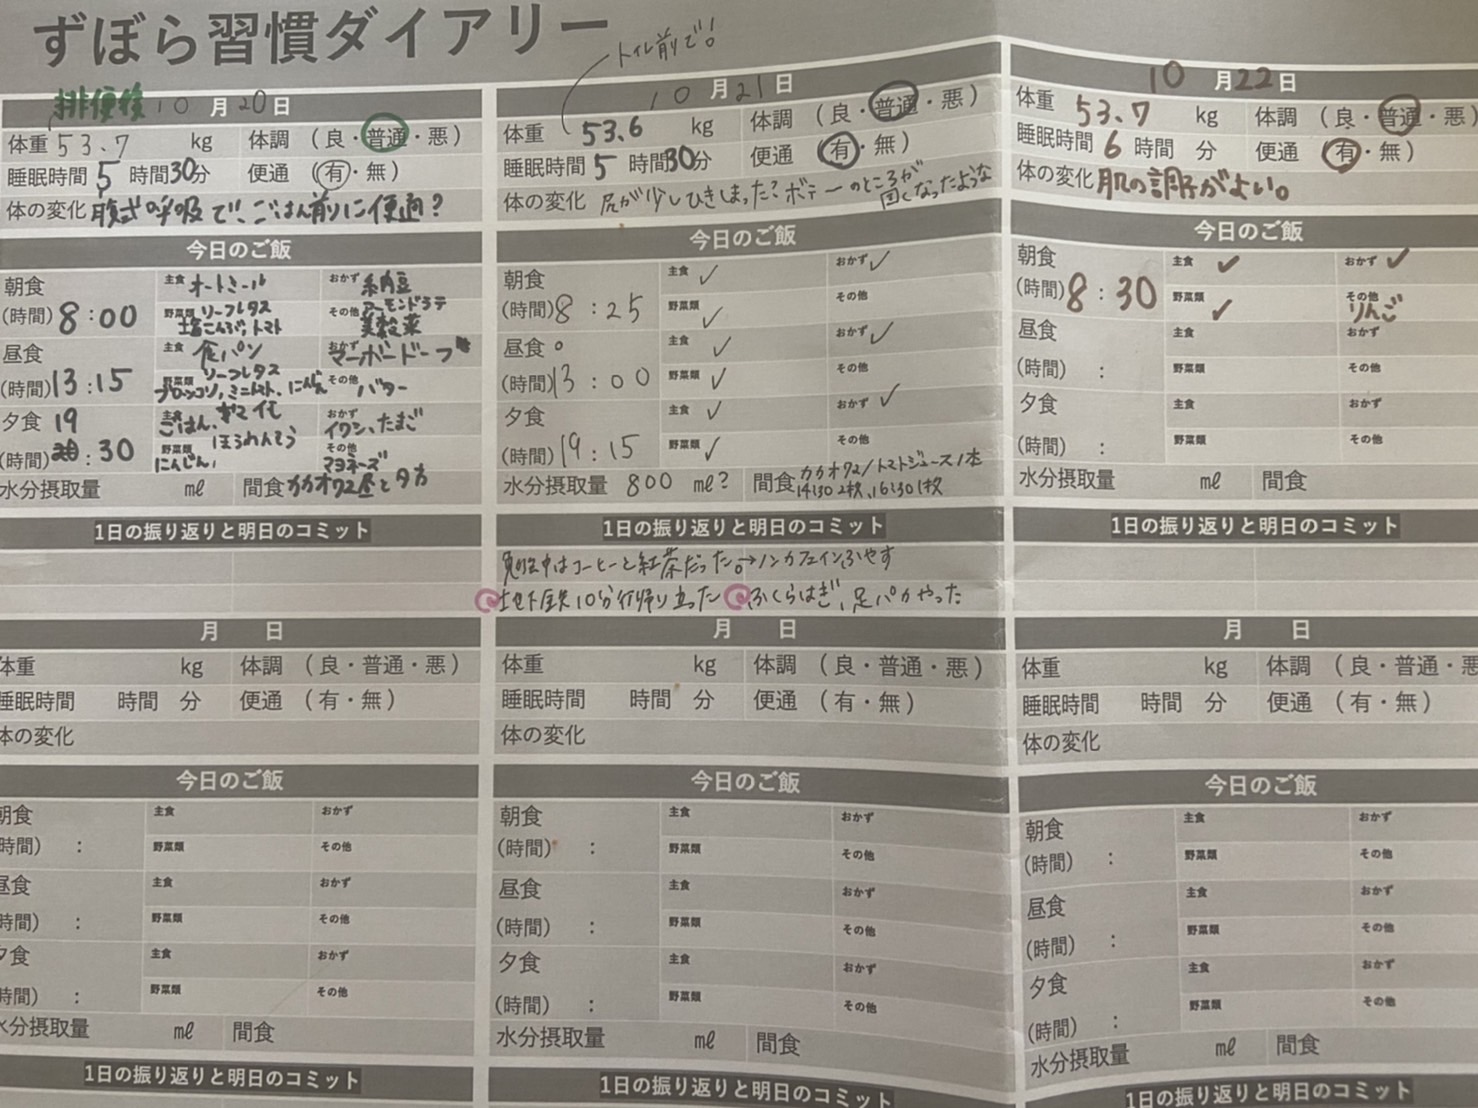 ずぼら習慣ダイアリー
トイレ前で！
排便後 10月20日
体重 53.7 kg 体調 （良・普通・悪）
睡眠時間 5 時間 30分 便通 （有・無）
体の変化 腹式呼吸で、ごはん前に便通？
今日のご飯
朝食 主食 オートミール おかず 納豆
(時間) 8:00 野菜類 リーフレタス 塩こんぶ、トマト その他 アーモンドラテ 美穀菜
昼食 主食 食パン おかず マーボードーフ
(時間) 13:15 野菜類 リーフレタス ブロッコリ、ミニトマト、にんじん その他 バター
夕食 19 主食 ごはん、 おかず イワシ、たまご
(時間) :30 野菜類 ほうれんそう にんじん、 その他 マヨネーズ
水分摂取量 ml 間食 カカオ72 昼と夕方
1日の振り返りと明日のコミット
10月21日
体重 53.6 kg 体調 （良・普通・悪）
睡眠時間 5 時間 30分 便通 （有・無）
体の変化 尻が少しひきしまった？ボデーのところが固くなったような
今日のご飯
朝食 主食 ✓ おかず ✓
(時間) 8:25 野菜類 ✓ その他
昼食 主食 ✓ おかず ✓
(時間) 13:00 野菜類 ✓ その他
夕食 主食 ✓ おかず ✓
(時間) 19:15 野菜類 ✓ その他
水分摂取量 800 ml? 間食 カカオ72/トマトジュース1本
14:30 2枚、16:30 1枚
1日の振り返りと明日のコミット
勉強中はコーヒーと紅茶だった。→ノンカフェインふやす
地下鉄10分行帰り立った ふくらはぎ、足パカやった
10月22日
体重 53.7 kg 体調 （良・普通・悪）
睡眠時間 6 時間 分 便通 （有・無）
体の変化 肌の調子がよい。
今日のご飯
朝食 主食 ✓ おかず ✓
(時間) 8:30 野菜類 ✓ その他 りんご
昼食 主食 おかず
(時間) : 野菜類 その他
夕食 主食 おかず
(時間) : 野菜類 その他
水分摂取量 ml 間食
1日の振り返りと明日のコミット
月 日
体重 kg 体調 （良・普通・悪）
睡眠時間 時間 分 便通 （有・無）
体の変化
今日のご飯
朝食 主食 おかず
(時間) : 野菜類 その他
昼食 主食 おかず
(時間) : 野菜類 その他
夕食 主食 おかず
(時間) : 野菜類 その他
水分摂取量 ml 間食
1日の振り返りと明日のコミット
月 日
体重 kg 体調 （良・普通・悪）
睡眠時間 時間 分 便通 （有・無）
体の変化
今日のご飯
朝食 主食 おかず
(時間) : 野菜類 その他
昼食 主食 おかず
(時間) : 野菜類 その他
夕食 主食 おかず
(時間) : 野菜類 その他
水分摂取量 ml 間食
1日の振り返りと明日のコミット
月 日
体重 kg 体調 （良・普通・悪）
睡眠時間 時間 分 便通 （有・無）
体の変化
今日のご飯
朝食 主食 おかず
(時間) : 野菜類 その他
昼食 主食 おかず
(時間) : 野菜類 その他
夕食 主食 おかず
(時間) : 野菜類 その他
水分摂取量 ml 間食
1日の振り返りと明日のコミット